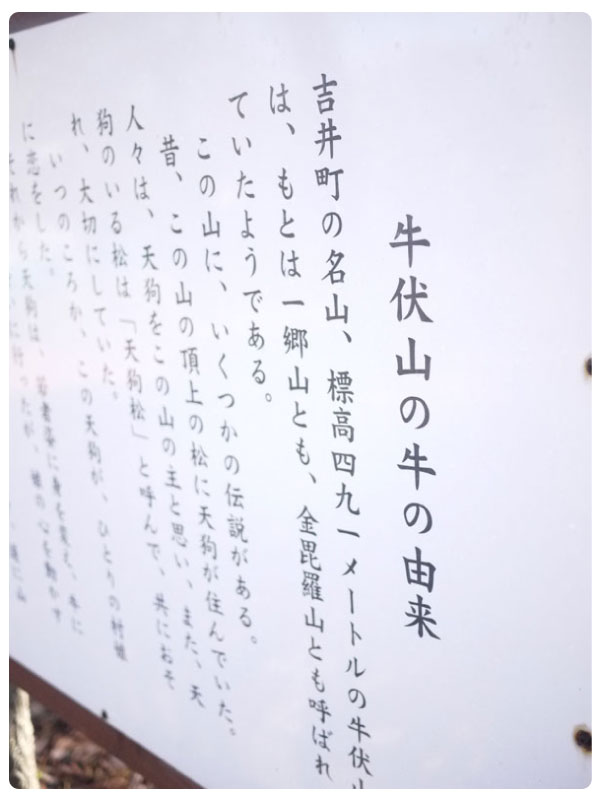 牛伏山の牛の由来
吉井町の名山、標高四九一メートルの牛伏山
は、もとは一郷山とも、金毘羅山とも呼ばれ
ていたようである。
この山に、いくつかの伝説がある。
昔、この山の頂上の松に天狗が住んでいた。
人々は、天狗をこの山の主と思い、また、天
狗のいる松は「天狗松」と呼んで、共におそ
れ、大切にしていた。
いつのころか、この天狗が、ひとりの村娘
に恋をした。
それから天狗は、若者姿に身を変え、牛に
に行ったが、娘の心を動かす